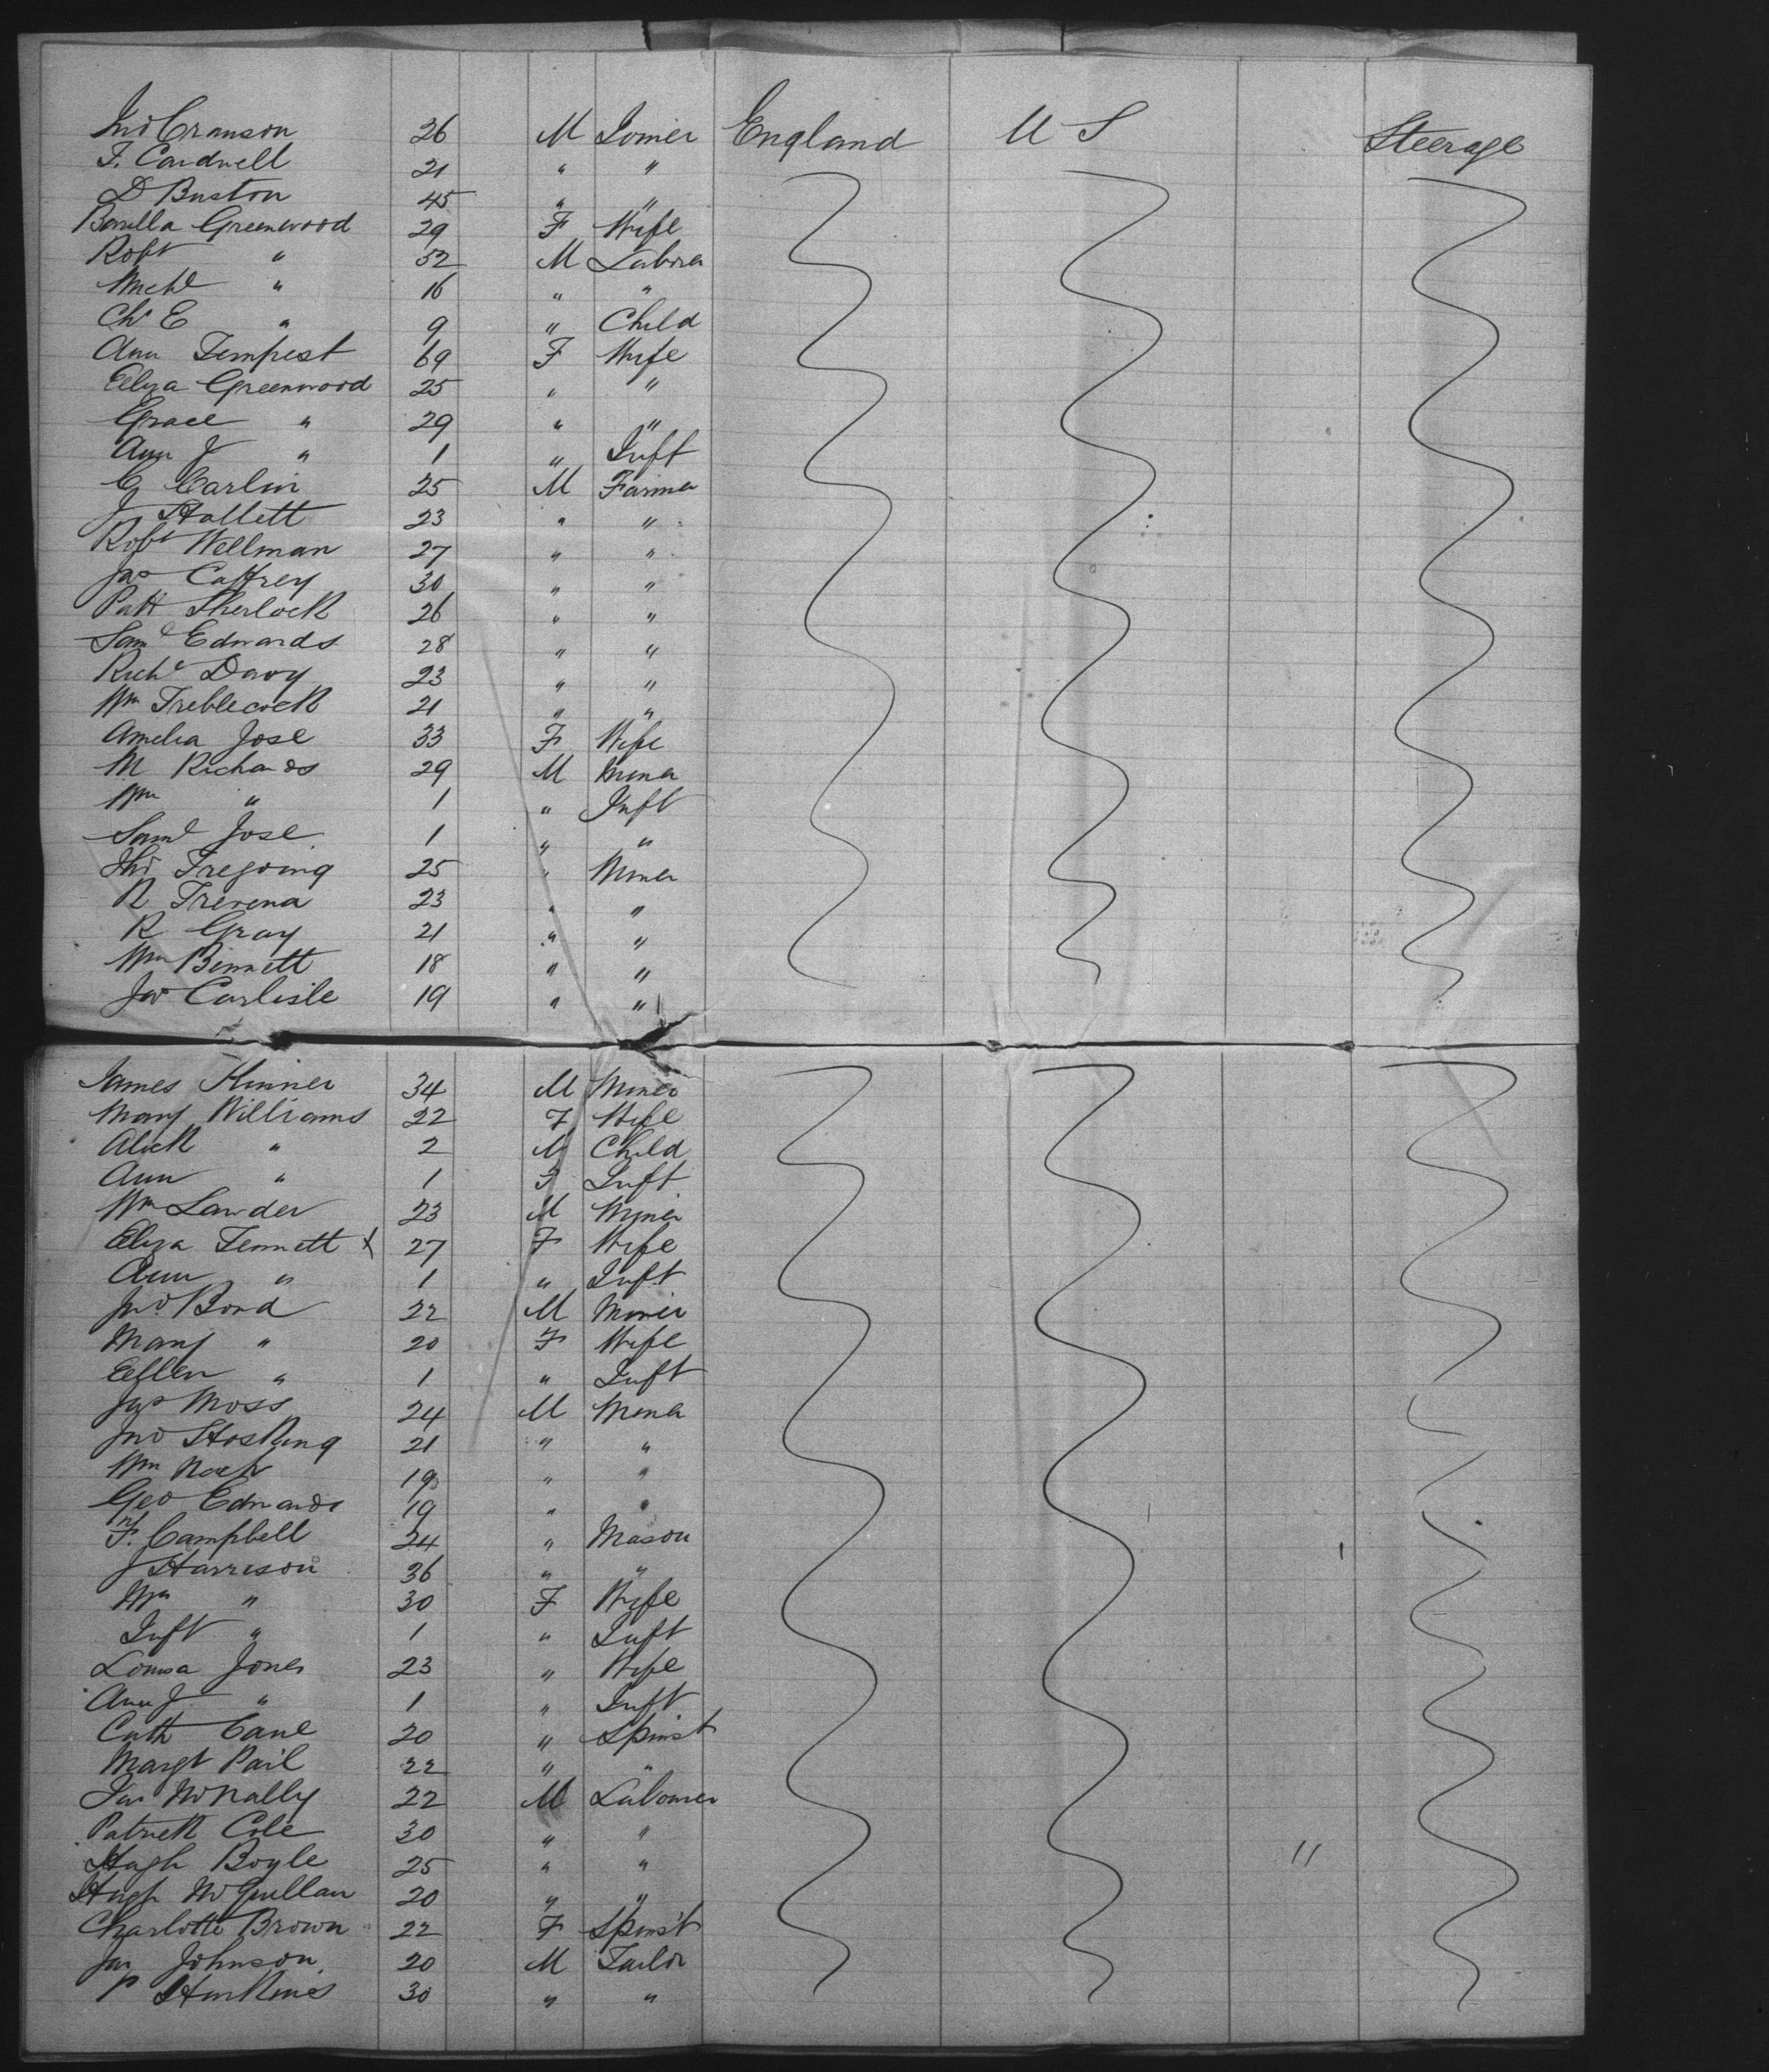 Jno Cranson 26 M Joiner England U S Steerage
F. Cardwell 21 " "
D Buston 45 " "
Benella Greenwood 29 F Wife
Robt " 52 M Labrer
Michl " 16 " "
Chs E " 9 " Child
Ann Tempest 69 F Wife
Eliza Greenwood 25 " "
Grace " 29 " "
Ann J " 1 " Inft
C Carlin 25 M Farmer
J Hallett 23 " "
Robt Wellman 27 " "
Jas Caffrey 30 " "
Patt Sherlock 26 " "
Saml Edwards 28 " "
Richd Davy 23 " "
Wm Treblecock 21 " "
Amelia Jose 33 F Wife
M Richards 29 M Miner
Wm " 1 " Inft
Saml Jose 1 " "
Jno Tregoing 25 " Miner
R Trevena 23 " "
R Gray 21 " "
Wm Bennett 18 " "
Jas Carlisle 19 " "
James Kinner 34 M Miner
Mary Williams 22 F Wife
Alick " 2 M Child
Ann " 1 F Inft
Wm Lawder 23 M Miner
Eliza Tennett X 27 F Wife
Ann " 1 " Inft
Jno Bond 22 M Miner
Mary " 20 F Wife
Ellen " 1 " Inft
Jas Moss 24 M Miner
Jno Hosking 21 " "
Wm 19 " "
Geo Edwards 19 " "
F. Campbell 24 " Mason
J Harrison 36 " "
" 30 F Wife
Inft " 1 " Inft
Louisa Jones 23 " Wife
Ann J " 1 " Inft
Cath Cane 20 " Spinst
Margt Pail 22 " "
Jas McNally 22 M Labourer
Patrick Cole 30 " "
Hugh Boyle 25 " " "
Hugh McQuillan 20 " "
Charlotte Brown 22 F Spinst
Jas Johnson 20 M Tailor
P Hawkins 30 " "